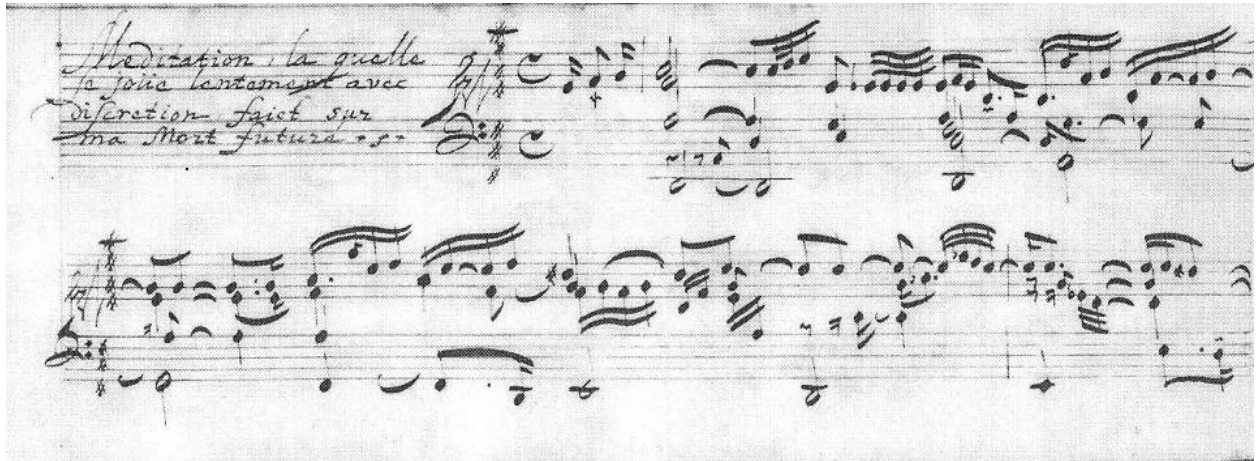 Meditation, la quelle
se joüe lentement avec
discretion faict sur
ma Mort future